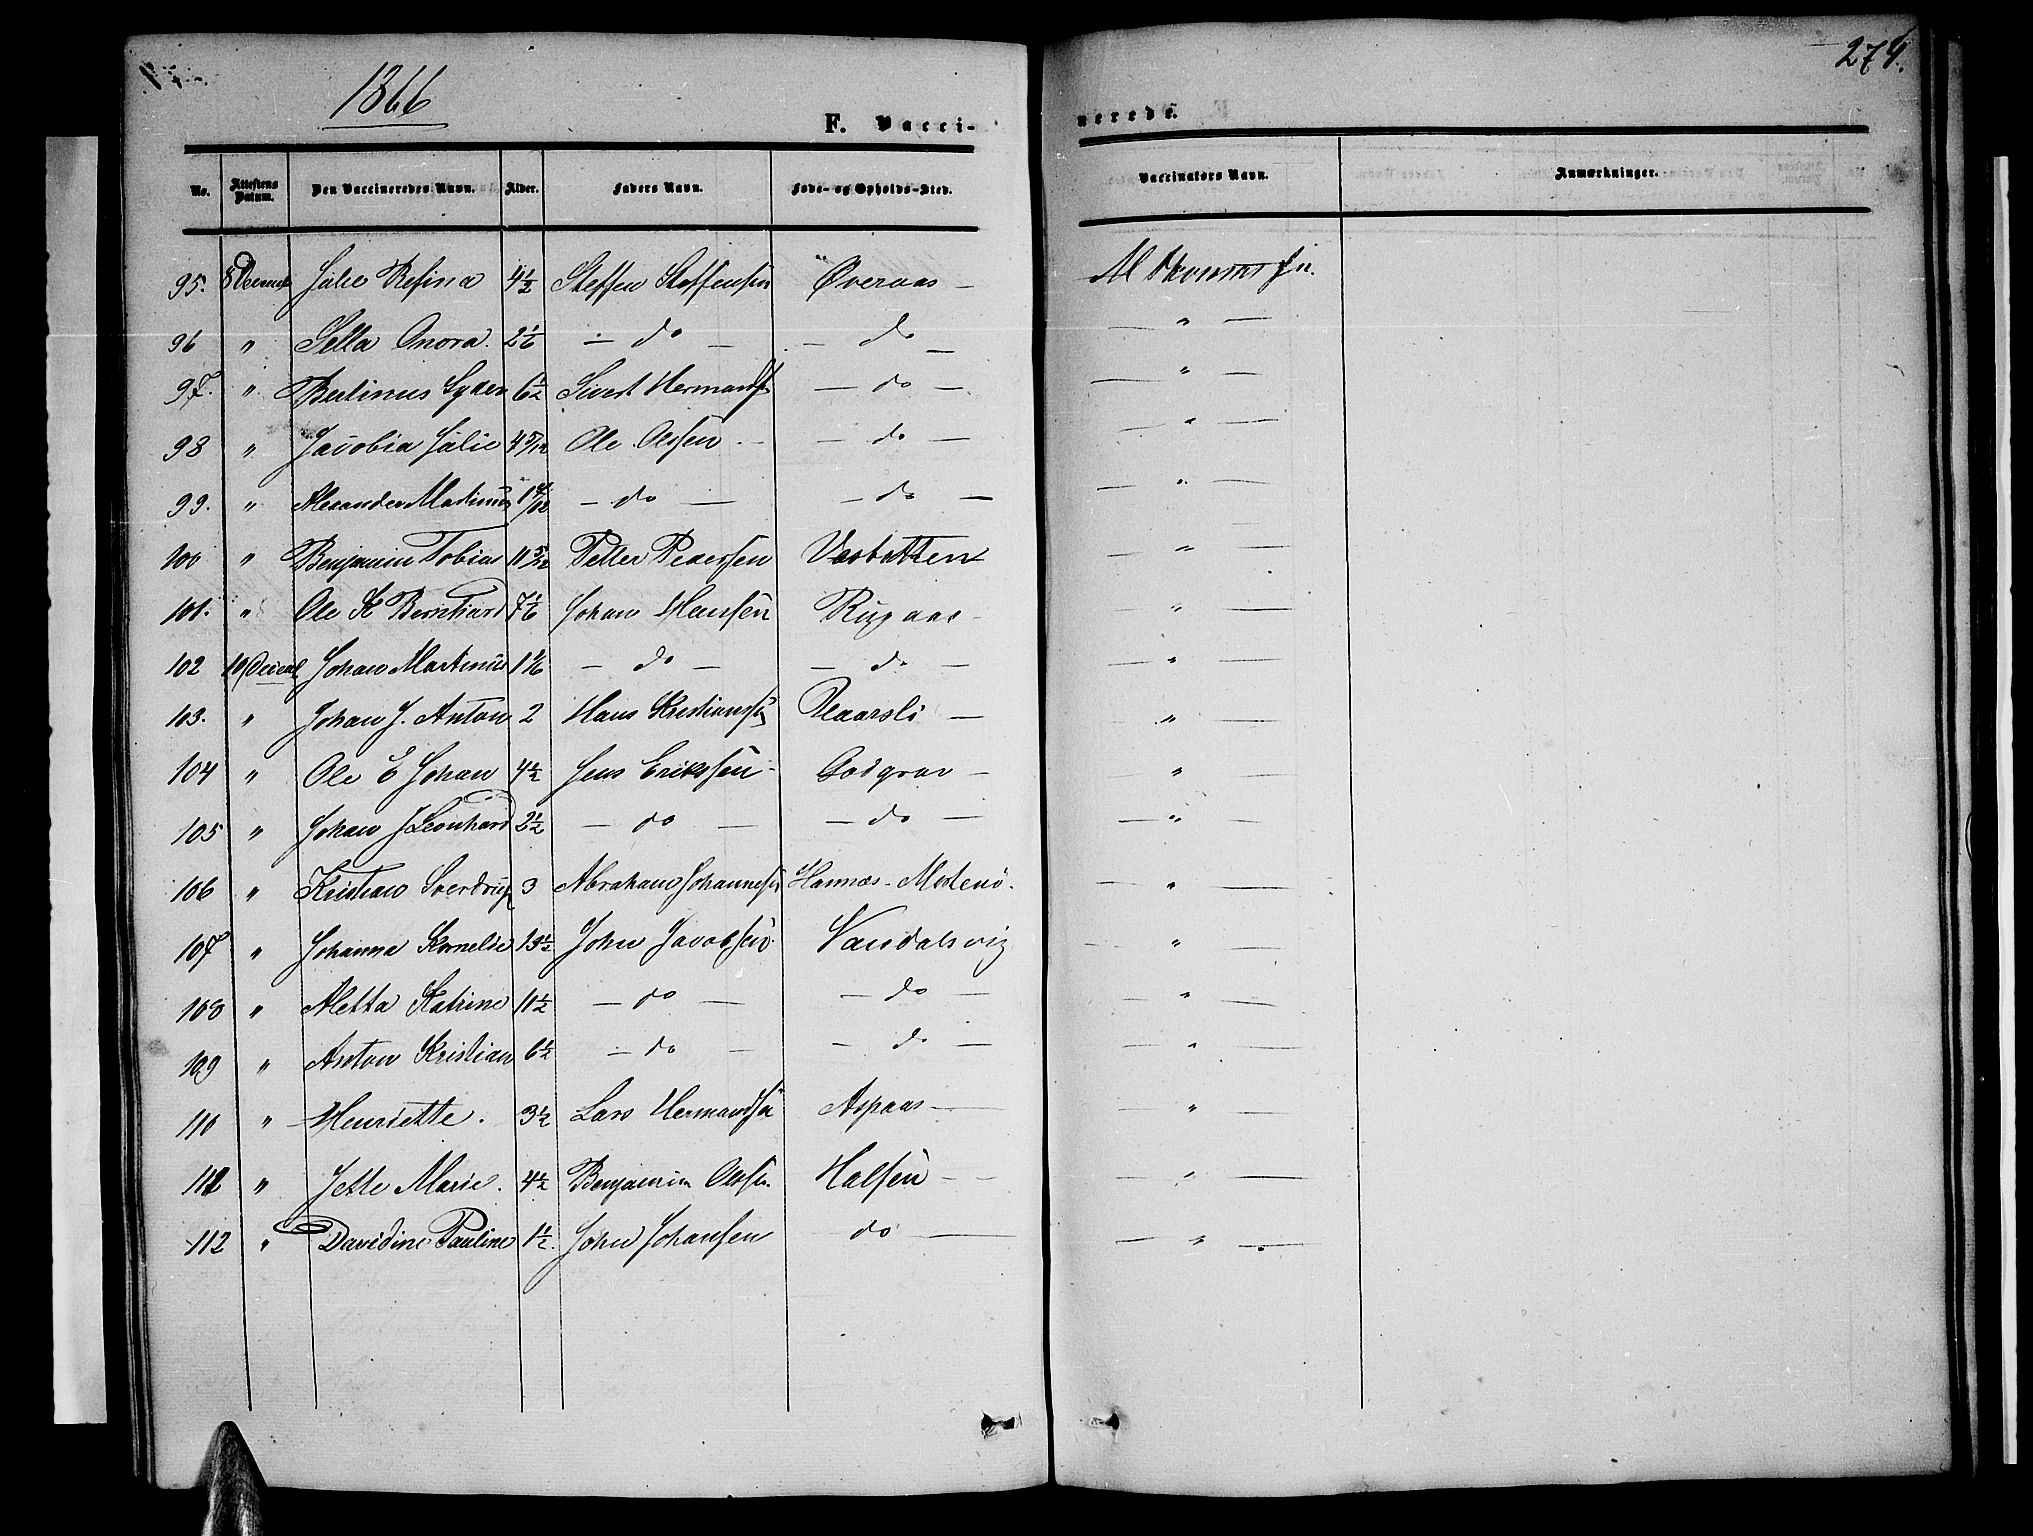 1866
274.
F. Vacci-
nerede.
No. Attestens Datum. Den Vaccineredes Navn. Alder. Faders Navn. Føde- og Opholds-Sted. Vaccinators Navn. Anmærkninger.
95. 8 Julie Resina 4 1/2 Steffen Steffensen Øveraas —
96 " Sella Onora. 2 1/6 — do — — do — — " —
97. " Bertinus 6 1/2 Sivert Hermands — do — — " —
98 " Jacobia Julie 4 5/12 Ole Olssen — — do — — " —
99. " Alexander Martinus — do — — do — — " —
100 " Benjamin Tobias 11 5/12 Petter Pederssen — " —
101. " Ole K Bernthard 7 1/6 Johan Hanssen — " —
102 10 Decem Johan Martinus 1 1/6 — do — — do — — " —
103. " Johan J. Anton 2 Hans Kristianss — " —
104 " Ole E Johan 4 1/2 Jens Erikssen — — " —
105 " Johan J Leonhard 2 1/2 — do — — do — — " —
106 " Kristian Sverdrup 3 Abraham Johannes Hannæs. — " —
107 " Johanna Kornelie 13 1/2 John Jacobsen Vandalsvig — " —
108 " Aletta Katrine 11 1/2 — do — — do — — " —
109 " Anton Kristian 6 1/2 — do — — do — — " —
110 " Henriette. 3 1/2 Lars Hermands Aspaas — — " —
111 " Jette Marie. 4 1/2 Benjamin Olss Halsen — — " —
112 " Davidine Pauline 1 1/2. John Johansen do — — " —